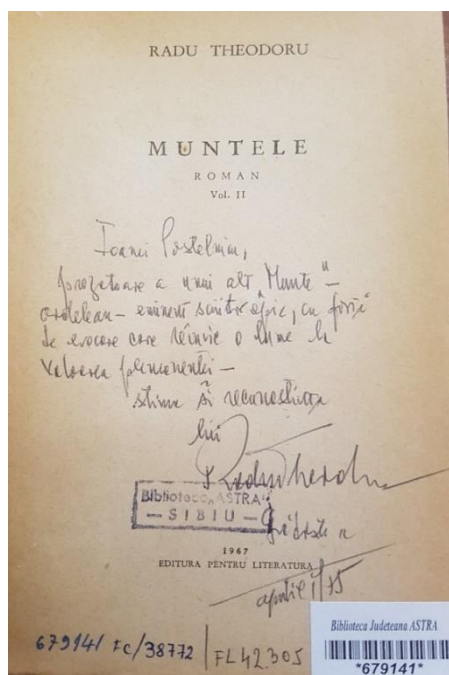 RADU THEODORU
MUNTELE
ROMAN
Vol. II
Ioanei Postelnicu,
prozatoare a unui alt "Munte" –
ardelean – eminent scriitor epic, cu forță
de evocare care reînvie o lume la
valoarea permanenței –
stima și recunoștința
lui
Radu Theodoru
Biblioteca „ASTRA"
— SIBIU —
1967
EDITURA PENTRU LITERATURĂ
aprilie /75
679141 FC/38772 FL42.305
Biblioteca Judeteana ASTRA
*679141*